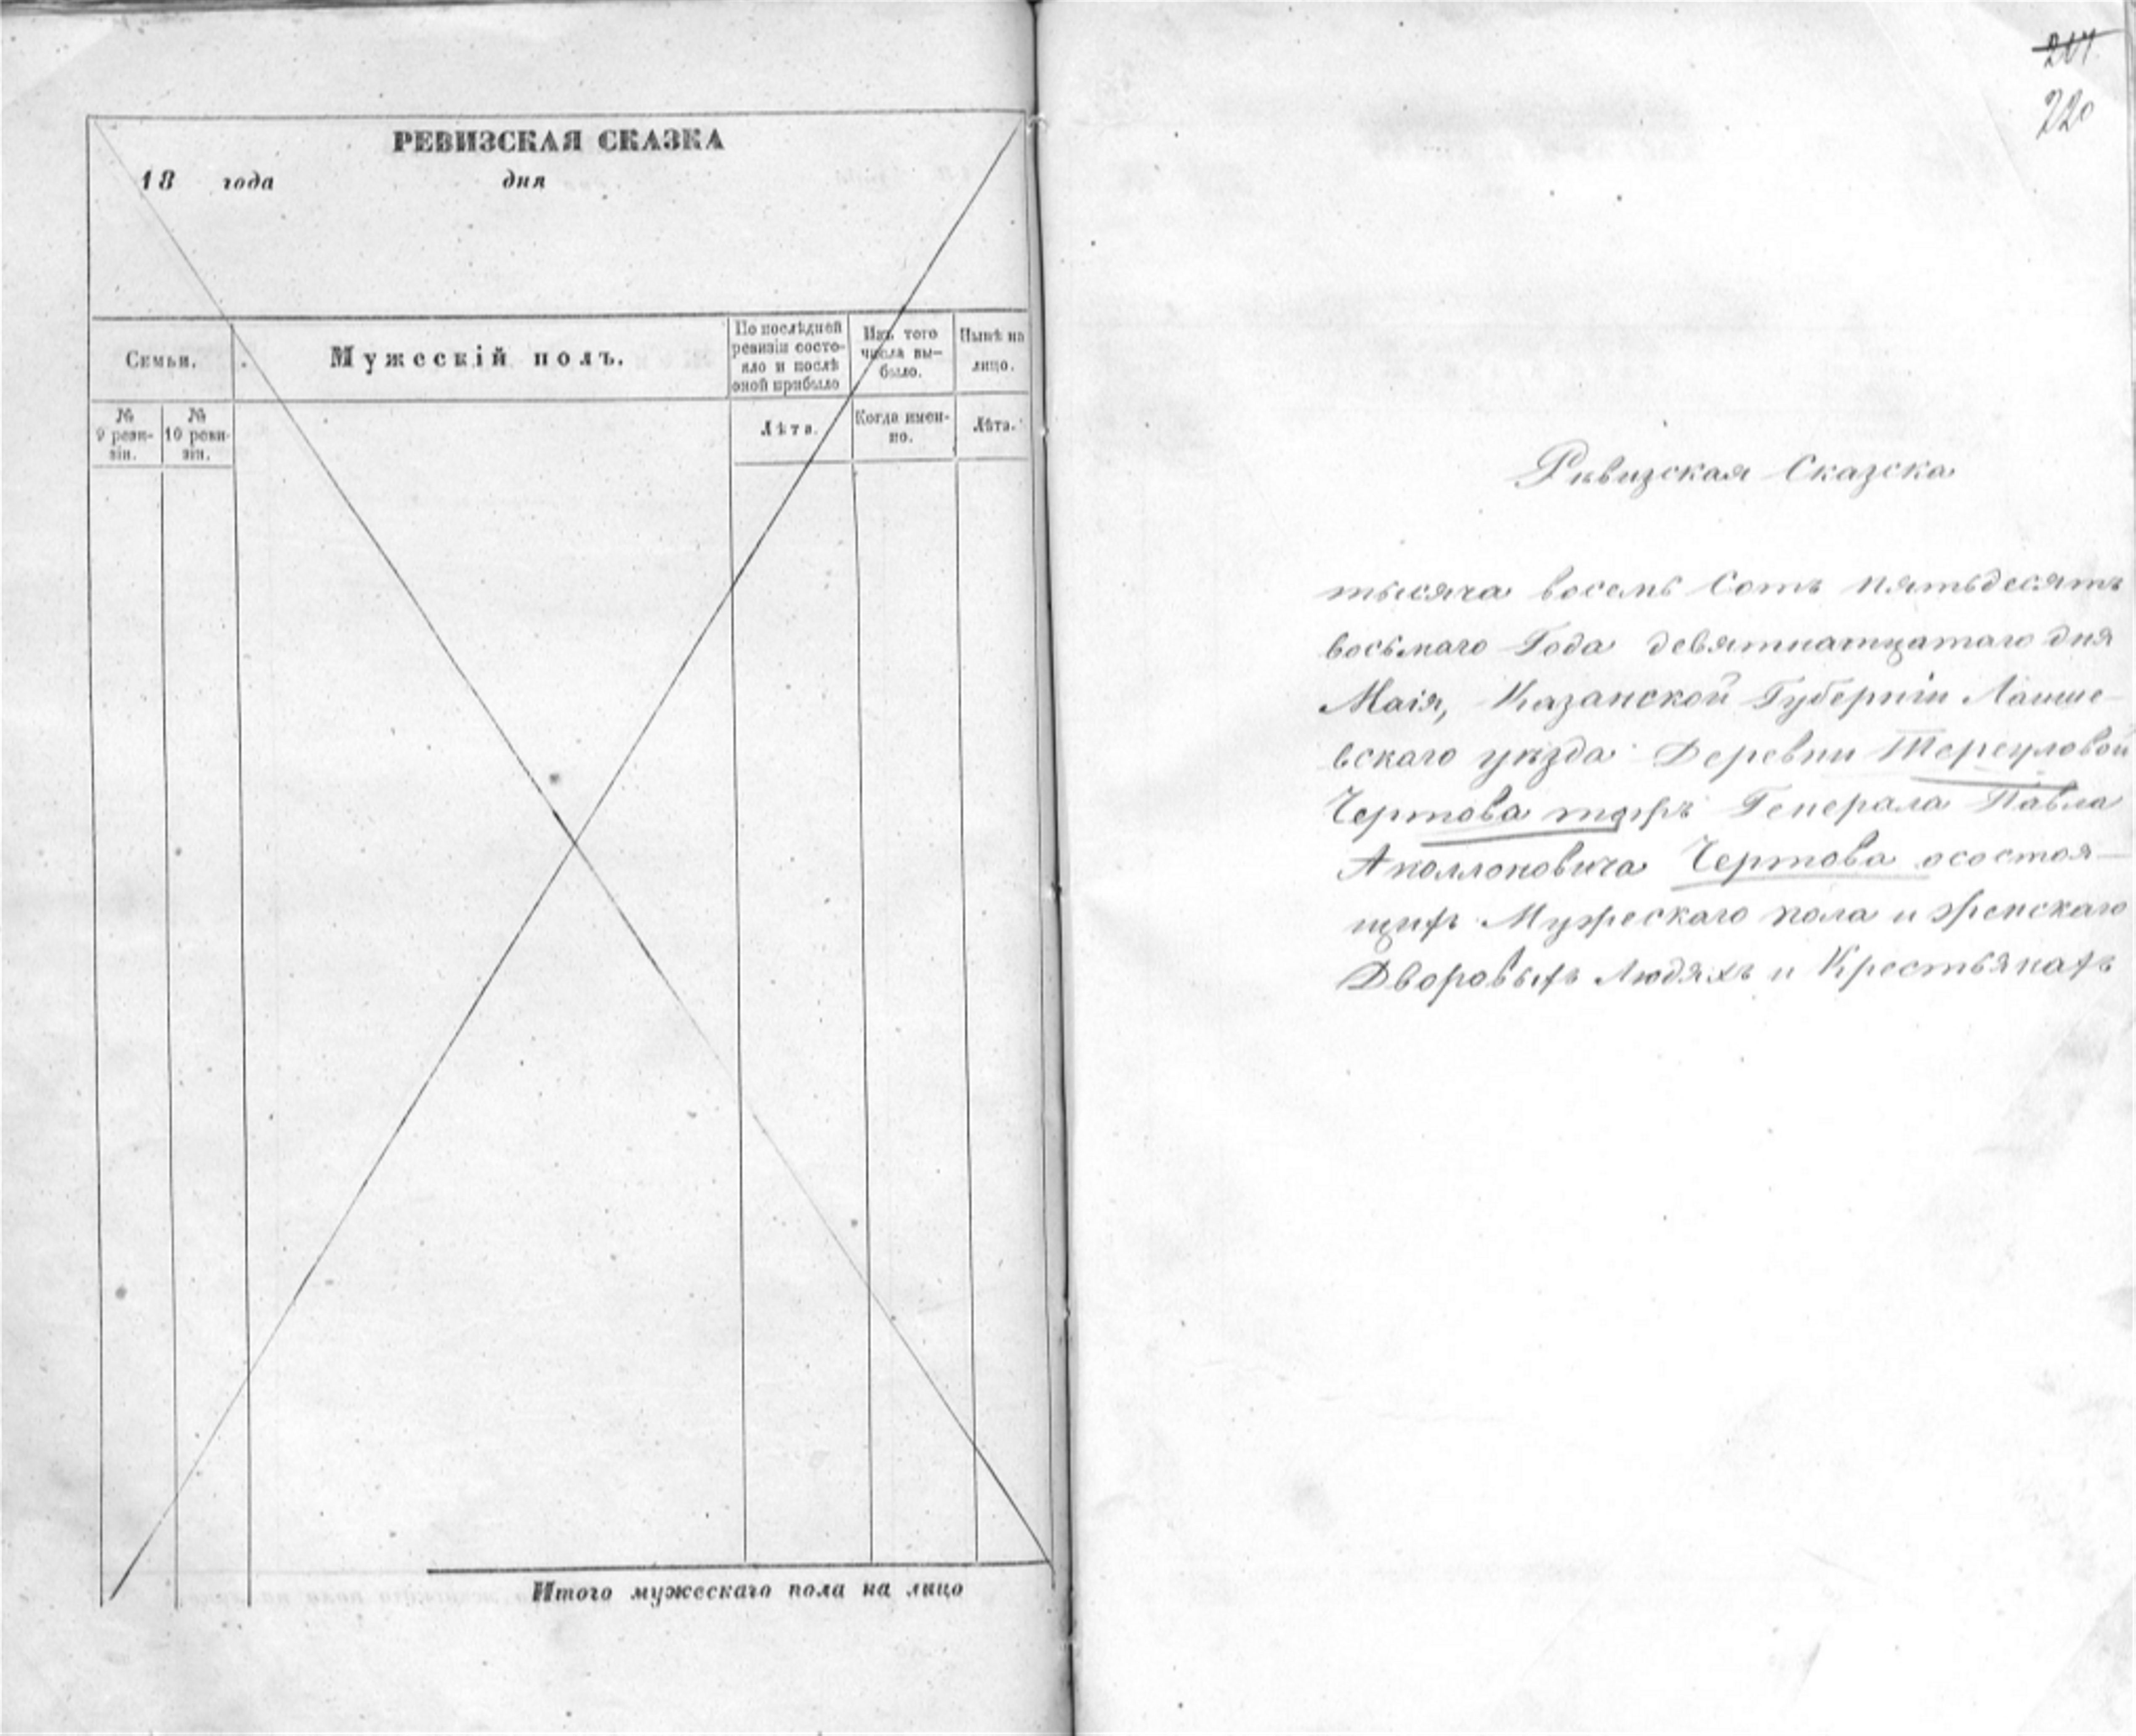 РЕВИЗСКАЯ СКАЗКА
18 года дня
Семьи.
Мужескій полъ.
По послѣдней
ревизіи состо-
яло и послѣ
оной прибыло
Изъ того
числа вы-
было.
Нынѣ на
лицо.
№
9 реви-
зіи.
№
10 реви-
зіи.
Лѣта.
Когда имен-
но.
Лѣта.
Итого мужескаго пола на лицо
217
220
Рѣвизская Сказска
тысяча восемь Сотъ пятьдесятъ
восьмаго Года девятнатцатаго дня
Маія, Казанской Губерніи Лаише-
вскаго уѣзда Деревни
Чертова тожъ Генерала Павла
Аполлоновича Чертова осостоя-
щихъ Мужескаго пола и женскаго
Дворовыхъ Людяхъ и Крестьянахъ